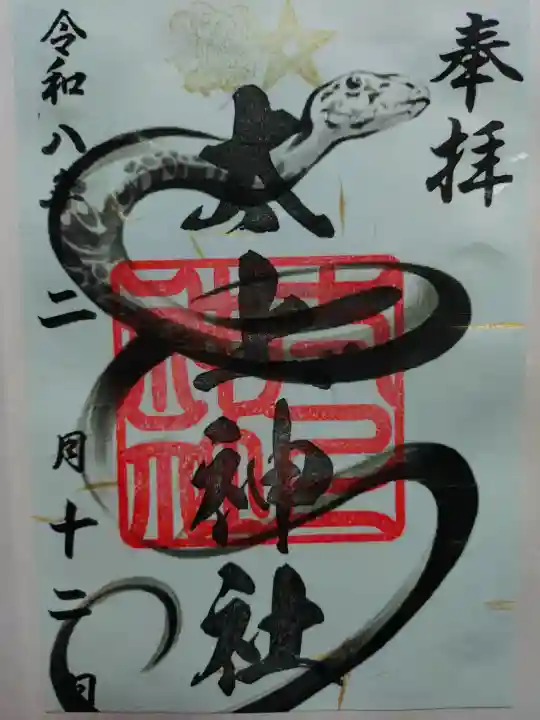 奉拝
太十神社
令和八年二月十二日